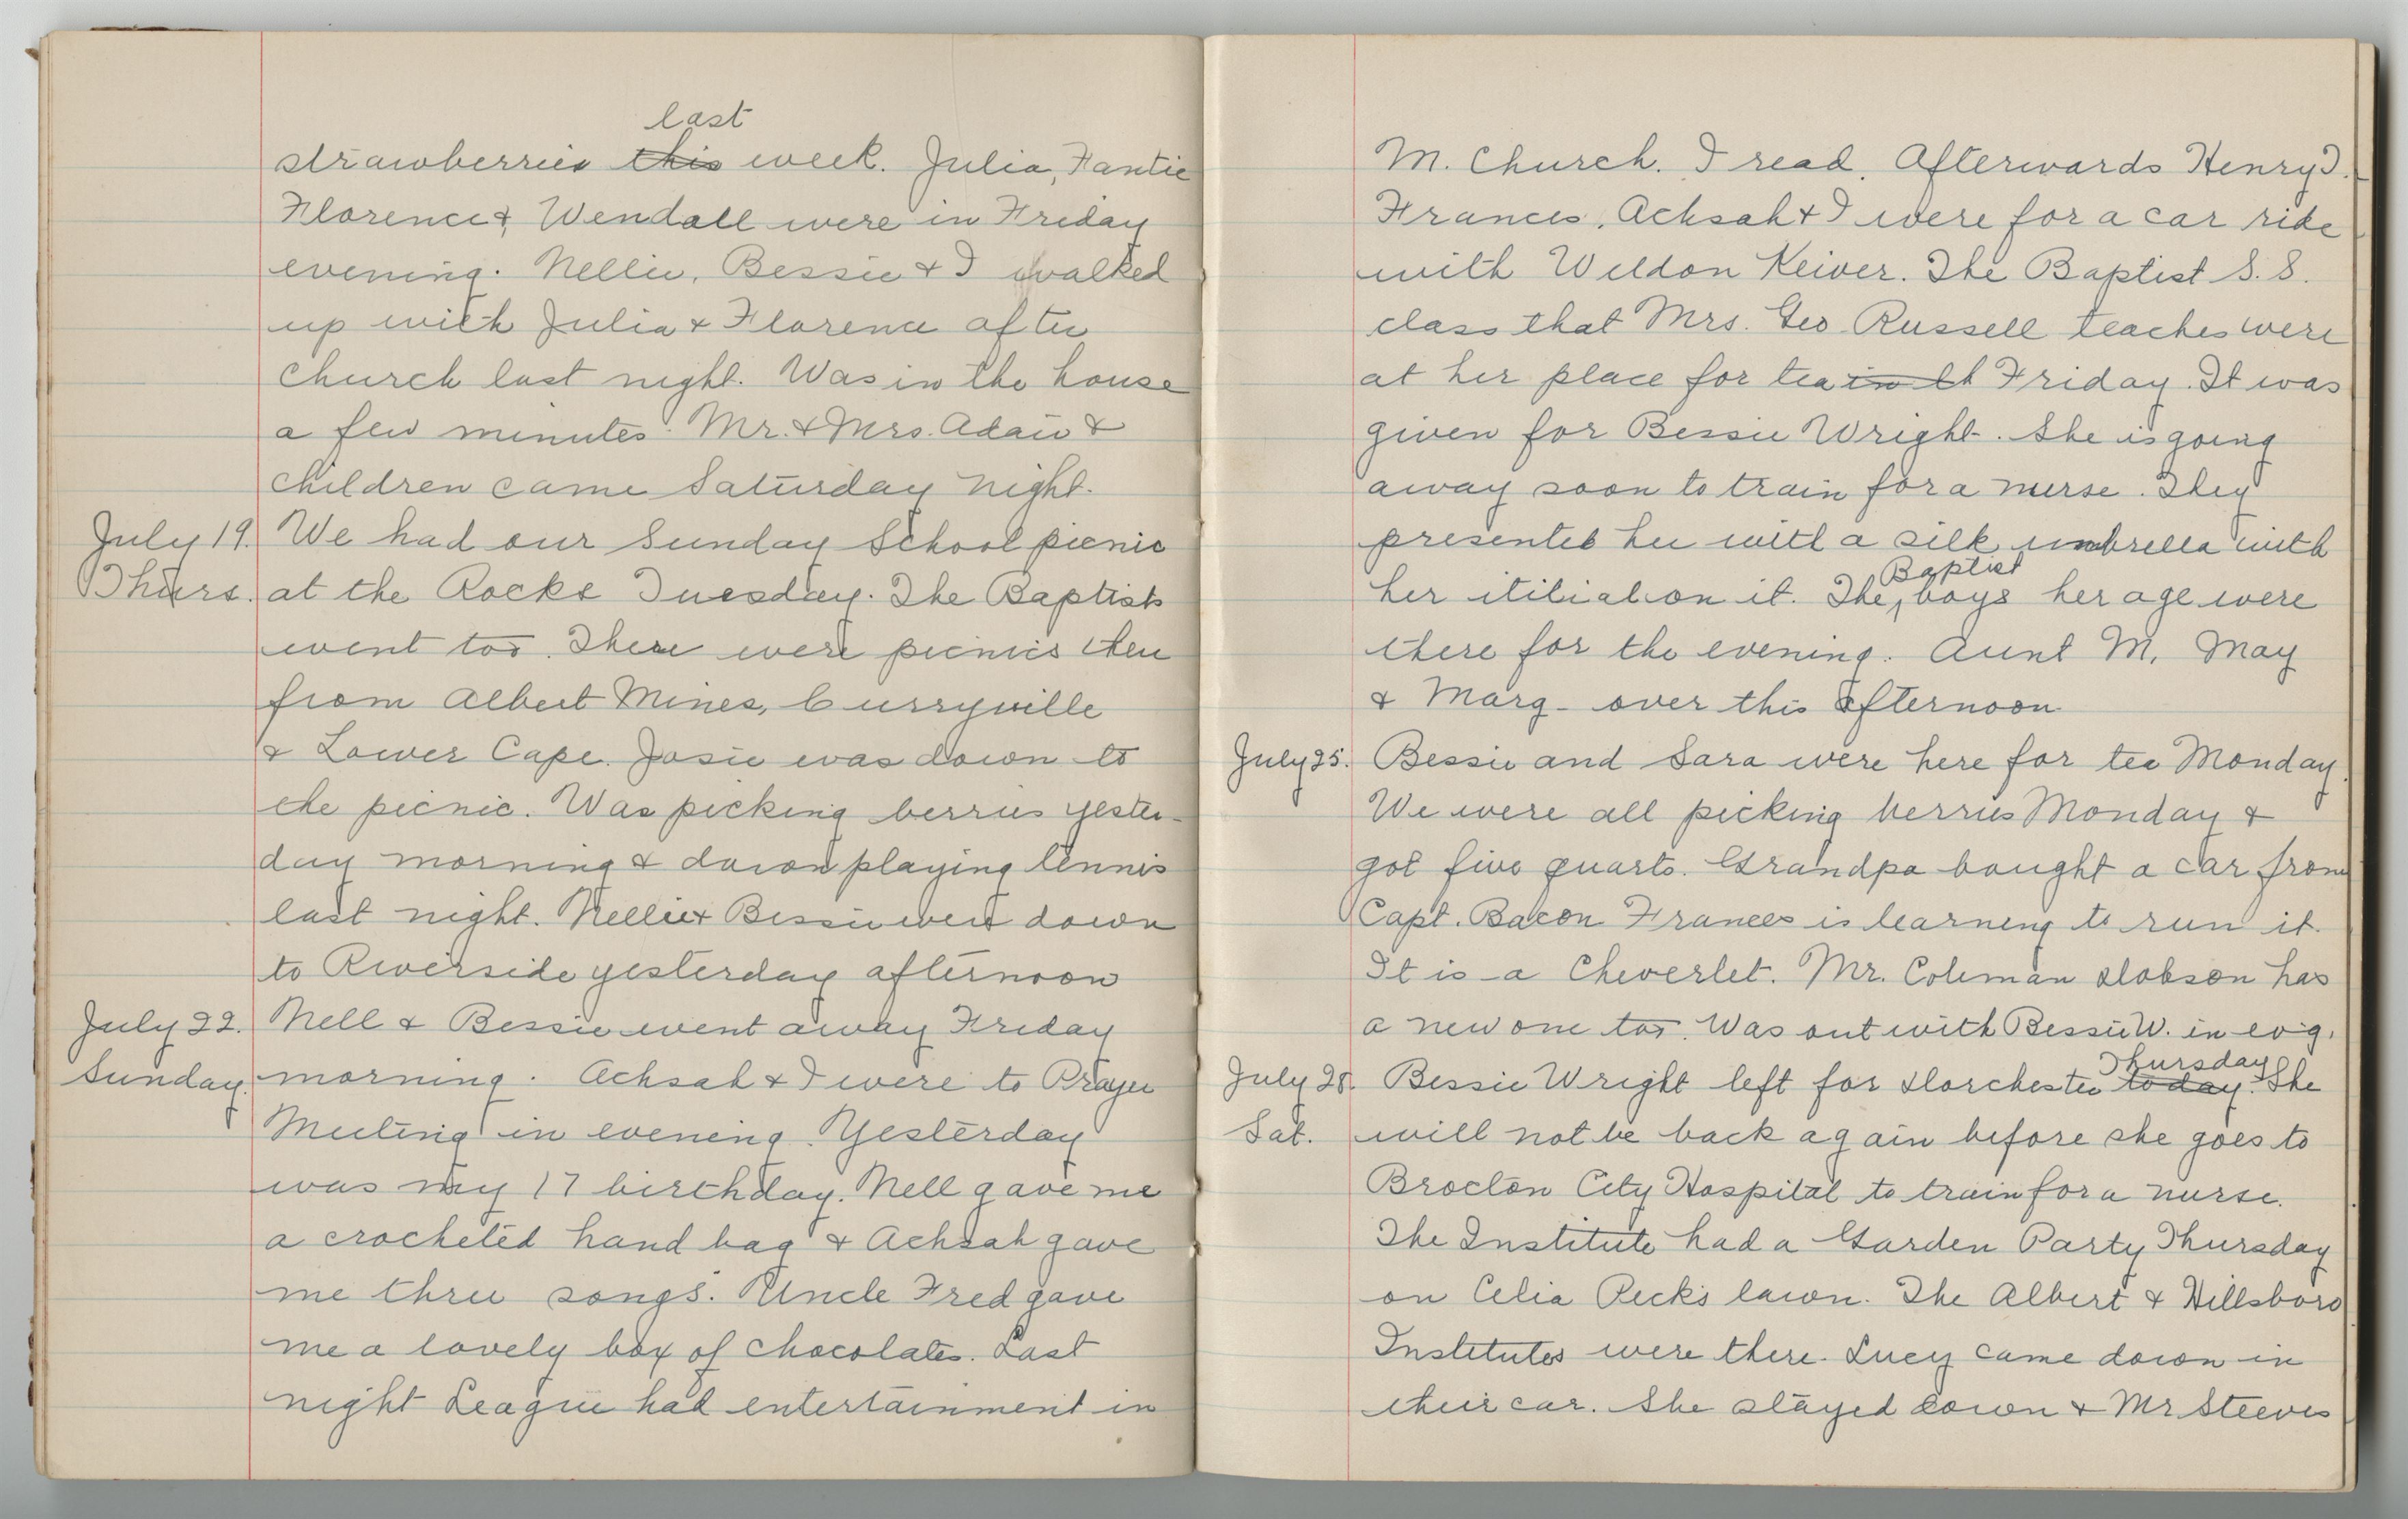 last
strawberries this week. Julia, Fantie
Florence & Wendall were in Friday
evening. Nellie, Bessie & I walked
up with Julia & Florence after
church last night. Was in the house
a few minutes. Mr. & Mrs. Adair &
children came Saturday night.
July 19. We had our Sunday School picnic
Thurs. at the Rocks Tuesday. The Baptists
went too. There were picnics there
from Albert Mines, Curryville
& Lower Cape. Josie was down to
the picnic. Was picking berries yester-
day morning & down playing tennis
last night. Nellie & Bessie were down
to Riverside yesterday afternoon
July 22. Nell & Bessie went away Friday
Sunday. morning. Achsah & I were to Prayer
Meeting in evening. Yesterday
was my 17 birthday. Nell gave me
a crocheted hand bag & Achsah gave
me three songs. Uncle Fred gave
me a lovely box of chocolates. Last
night League had entertainment in
M. Church. I read. Afterwards Henry D.
Frances, Achsah & I were for a car ride
with Weldon Keiver. The Baptist S. S.
class that Mrs. Geo Russell teaches were
at her place for tea in Friday. It was
given for Bessie Wright. She is going
away soon to train for a nurse. They
presented her with a silk umbrella with
Baptist
her itilial on it. The, boys her age were
there for the evening. Aunt M, May
& Marg - over this afternoon
July 25. Bessie and Sara were here for tea Monday.
We were all picking berries Monday &
got five quarts. Grandpa bought a car from
Capt. Bacon Frances is learning to run it.
It is a Cheverlet. Mr. Coleman Dobson has
a new one too. Was out with Bessie W. in evg.
Thursday
July 28. Bessie Wright left for Dorchester today. She
Sat. will not be back again before she goes to
Brocton City Hospital to train for a nurse.
The Institute had a Garden Party Thursday
on Celia Peck's lawn. The Albert & Hillsboro
Institutes were there. Lucy came down in
their car. She stayed down & Mr Steeves